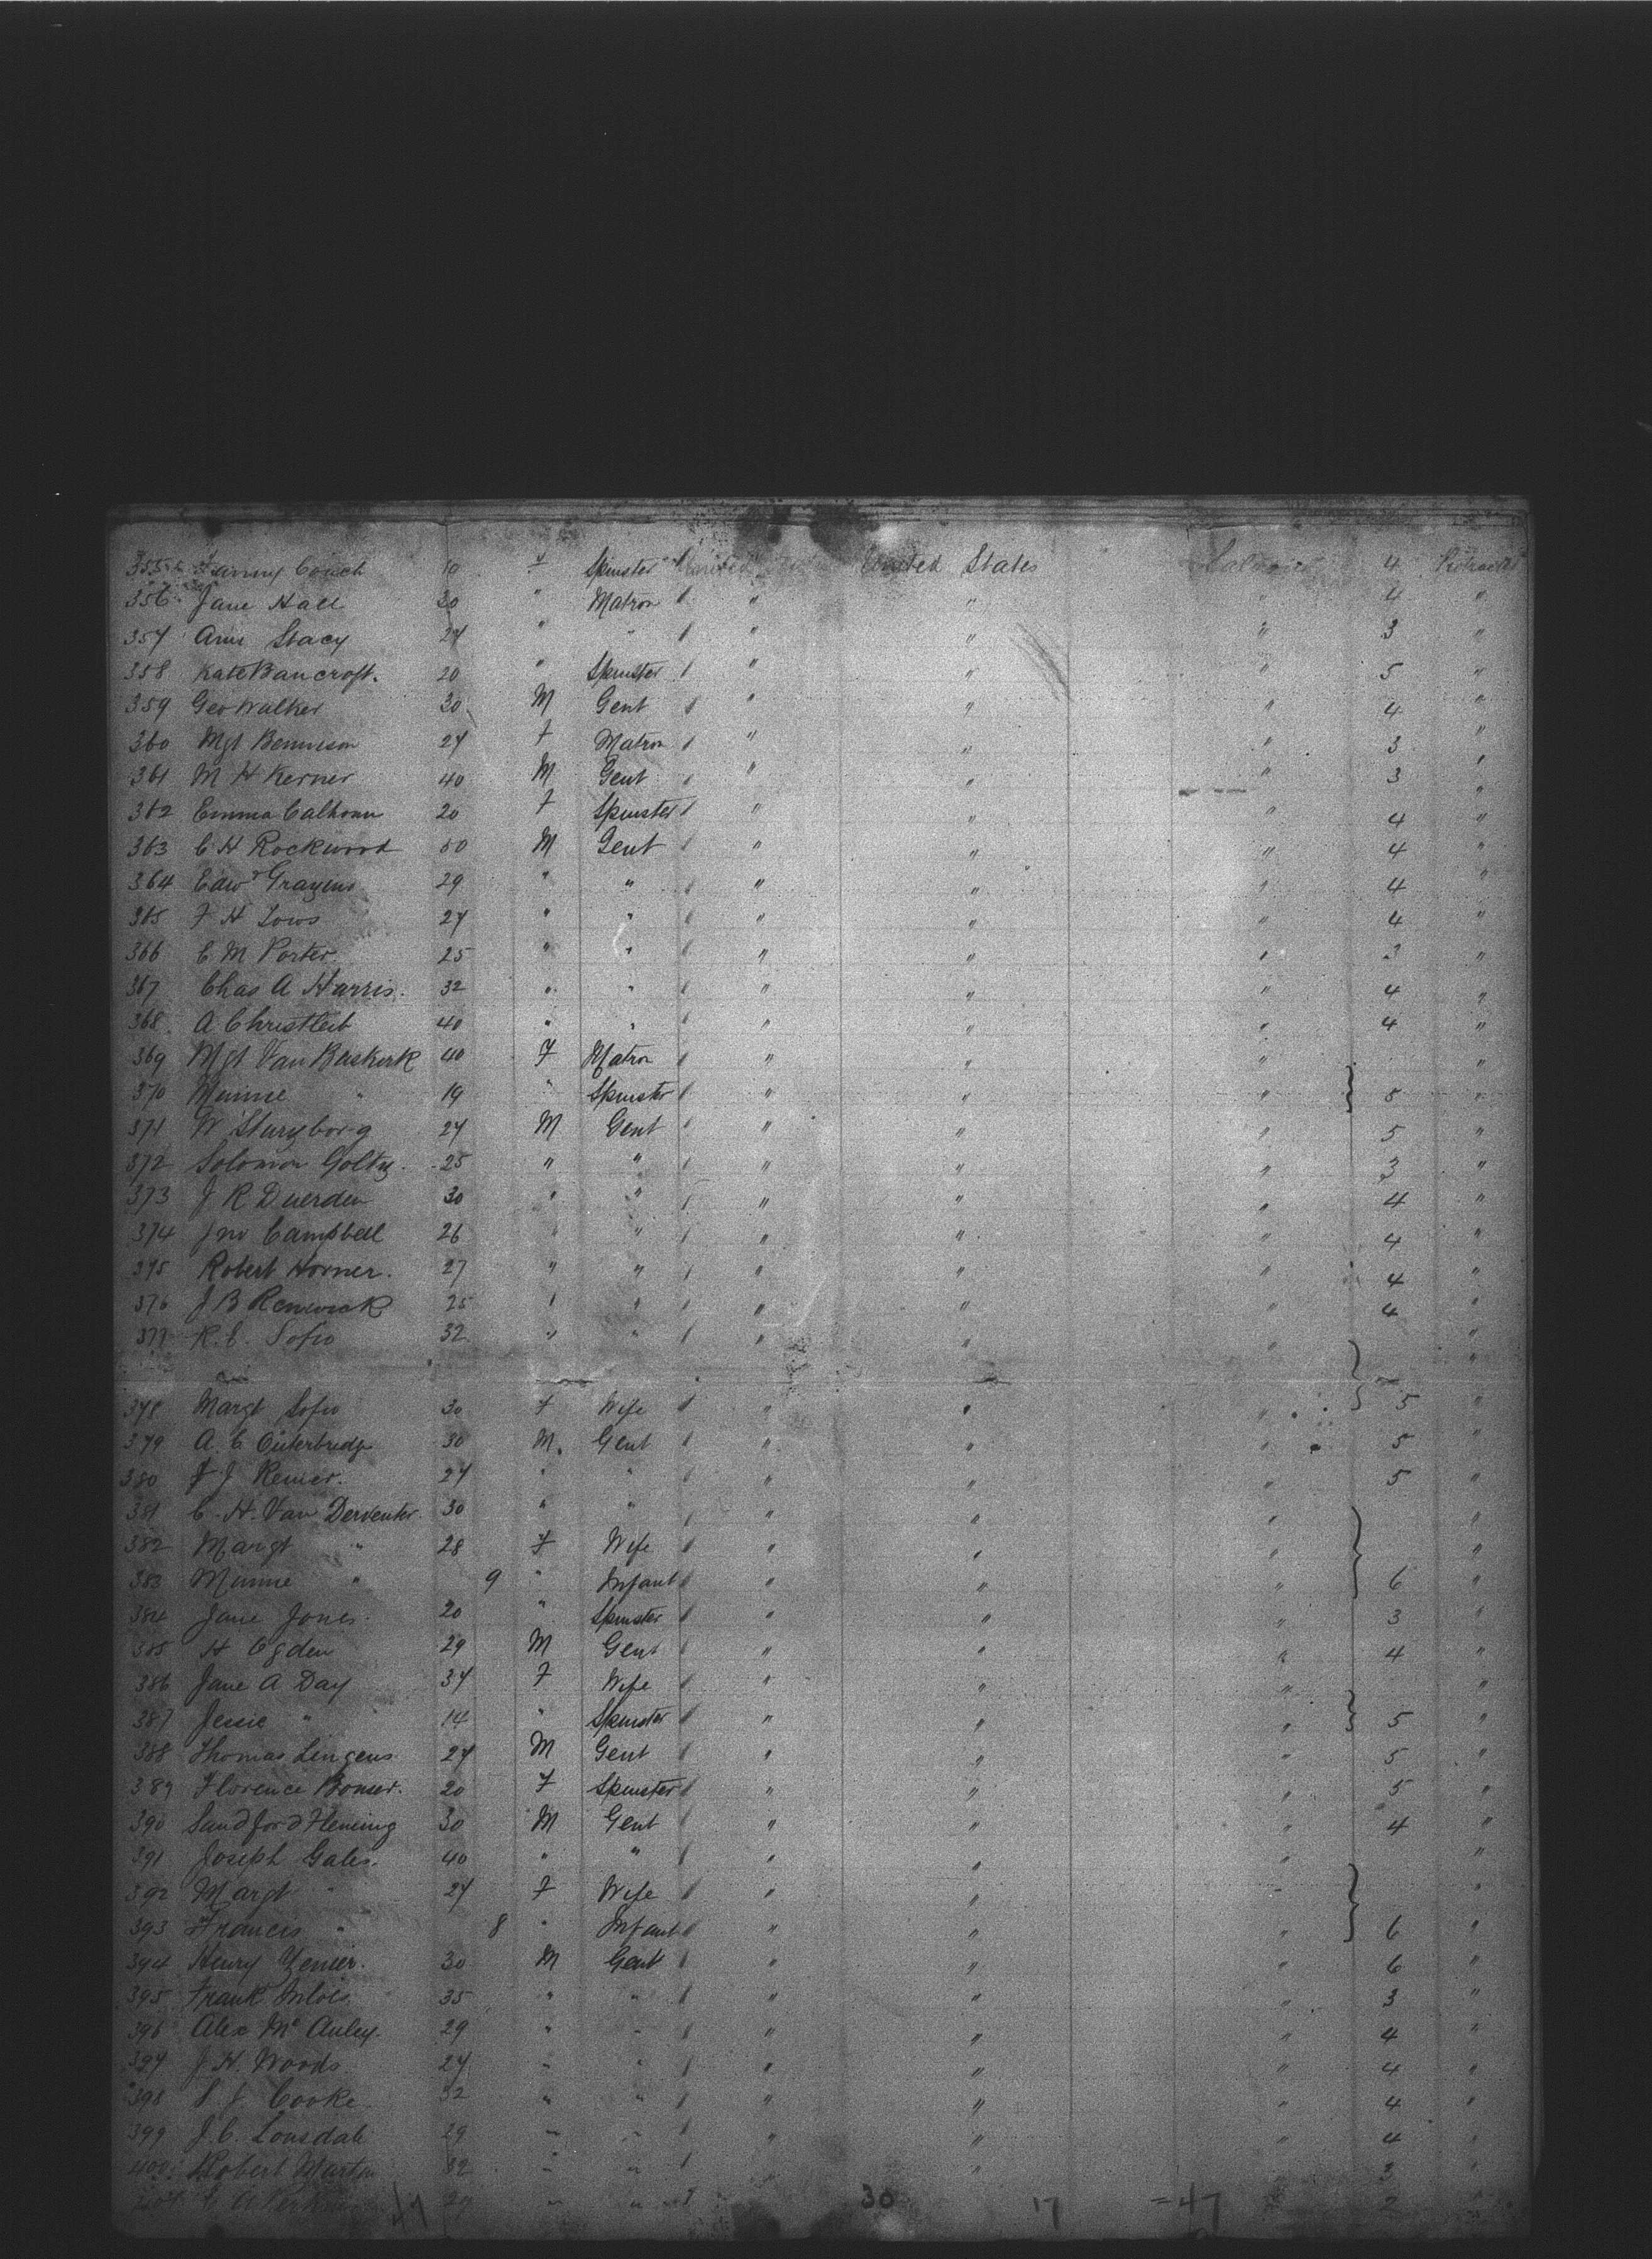 355 Fanny Couch 10 F Spinster United United States 4
356 Jane Hall 30 " Matron " " " 4 "
357 Ann Stacy 27 " " " " " 3 "
358 Kate Bancroft. 20 " Spinster " " " 5 "
359 Geo Walker 30 M Gent " " " 4 "
360 Mgt Bennison 27 F Matron " " " 3 "
361 M H Kerner 40 M Gent " " " 3 "
362 Emma Calhoun 20 F Spinster " " " 4 "
363 C H Rockwood 50 M Gent " " " 4 "
364 Edwd 29 " " " " " 4 "
365 F H Lows 27 " " " " " 4 "
366 C M Porter. 25 " " " " " 3 "
367 Chas A Harris. 32 " " " " " 4 "
368 A Christleib 40 " " " " " 4 "
369 Mgt Van Buskirk 40 F Matron " " " "
370 Minnie " 19 " Spinster " " " 5 "
371 W Sturzborg 27 M Gent " " " 5 "
372 Solomon Golty. 25 " " " " " 3 "
373 J R Duerden 30 " " " " " 4 "
374 Jno Campbell 26 " " " " " 4 "
375 Robert Horner. 27 " " " " " 4 "
376 J B Renwick 25 " " " " " 4 "
377 R. C. Sofio 32 " " " " " "
378 Margt Sofio 30 F Wife " " " 5 "
379 A. C Outerbridge 30 M. Gent " " " 5 "
380 F J Remer. 27 " " " " " 5 "
381 C. H. Van Derventer. 30 " " " " " "
382 Margt " 28 F Wife " " " "
383 Minnie " 9 " Infant " " " 6 "
384 Jane Jones. 20 " Spinster " " " 3 "
385 H Ogden 29 M Gent " " " 4 "
386 Jane A Day 37 F Wife " " " "
387 Jessie " 14 " Spinster " " " 5 "
388 Thomas Lingens 27 M Gent " " " 5 "
389 Florence Bonser. 20 F Spinster " " " 5 "
390 Sandford Fleming 30 M Gent " " " 4 "
391 Joseph Gales. 40 " " " " " "
392 Margt " 27 F Wife " " " "
393 Francis " 8 " Infant " " " 6 "
394 Henry 30 M Gent " " " 6 "
395 Frank 35 " " " " " 3 "
396 Alex Mc Auley. 29 " " " " " 4 "
397 J. H. Woods 27 " " " " " 4 "
398 J Cooke 32 " " " " " 4 "
399 J. C. Lonsdale 29 " " " " " 4 "
400 Robert Martin 32 " " " " 3 "
29 " " 30 17 = 47 2